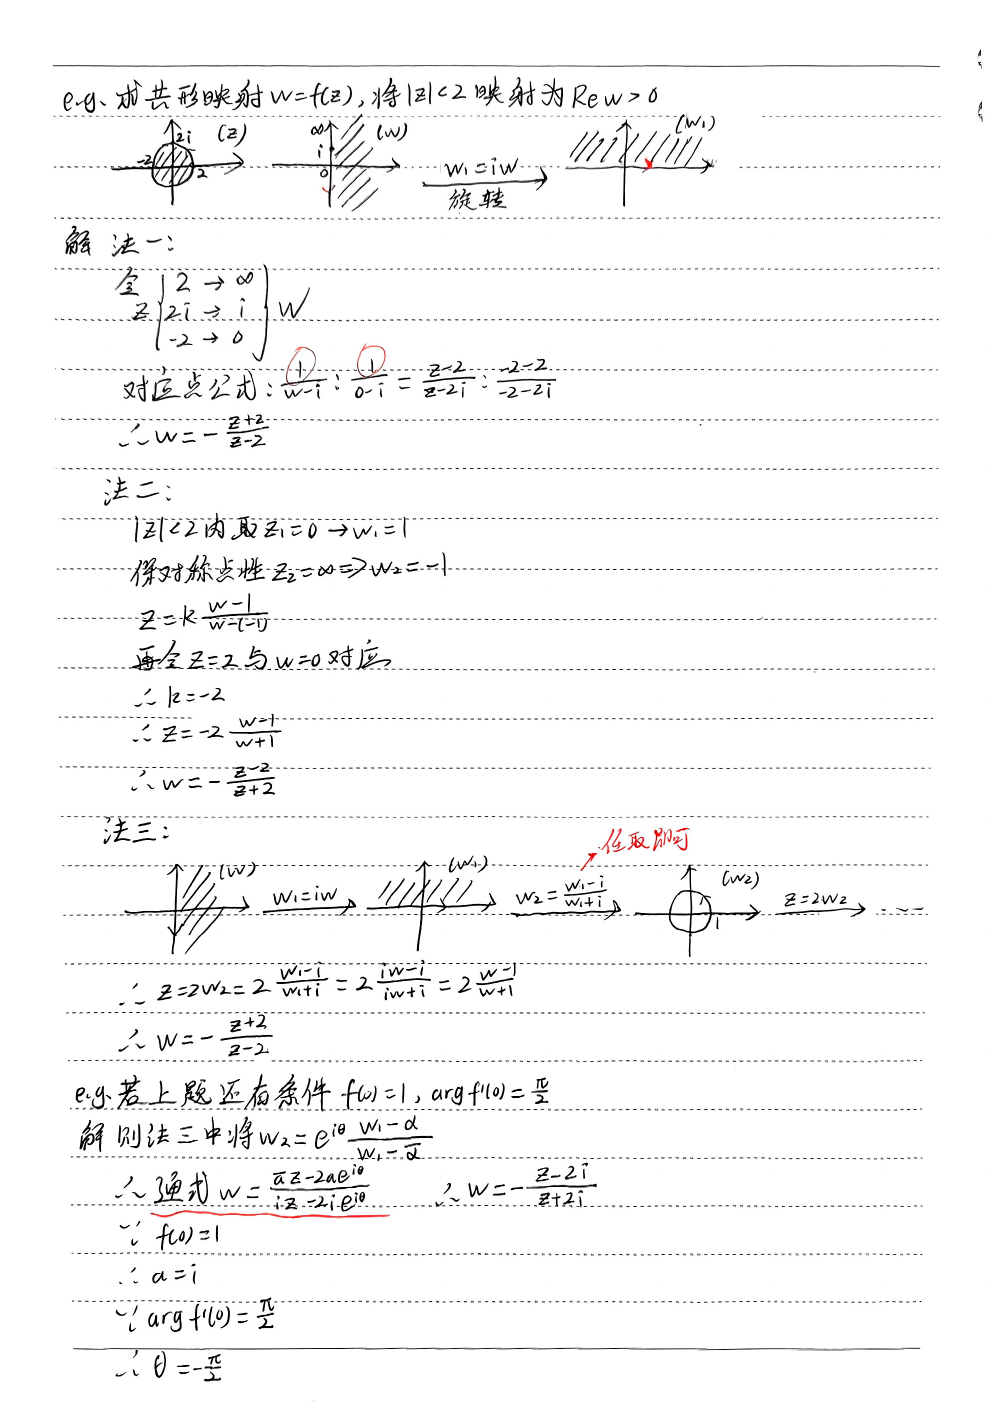 e.g. 求共形映射 w=f(z), 将|z|<2映射为 Re w>0
2i (z) -2 2
∞ i (w) 0
w₁=iw
旋转
(w₁)
解 法一:
令 z { 2 → ∞
2i → i
-2 → 0 } w
对应点公式: 1/(w-i) : 1/(0-i) = (z-2)/(z-2i) : (-2-2)/(-2-2i)
∴ w = - (z+2)/(z-2)
法二:
|z|<2内取 z₁=0 → w₁=1
保对称点性 z₂=∞ => w₂=-1
z = k (w-1)/(w-(-1))
再令 z=2 与 w=0 对应
∴ k=-2
∴ z = -2 (w-1)/(w+1)
∴ w = - (z-2)/(z+2)
法三:
任取即可
(w) w₁=iw (w₁) w₂ = (w₁-i)/(w₁+i) (w₂) 1 z=2w₂ ...
∴ z=2w₂ = 2 (w₁-i)/(w₁+i) = 2 (iw-i)/(iw+i) = 2 (w-1)/(w+1)
∴ w = - (z+2)/(z-2)
e.g. 若上题还有条件 f(0)=1, arg f'(0) = π/2
解 则法三中将 w₂ = e^{iθ} (w₁-α)/(w₁-ᾱ)
∴ 通式 w = (āz-2ae^{iθ})/(iz-2ie^{iθ}) ∴ w = - (z-2i)/(z+2i)
∵ f(0)=1
∴ a=i
∵ arg f'(0) = π/2
∴ θ = -π/2